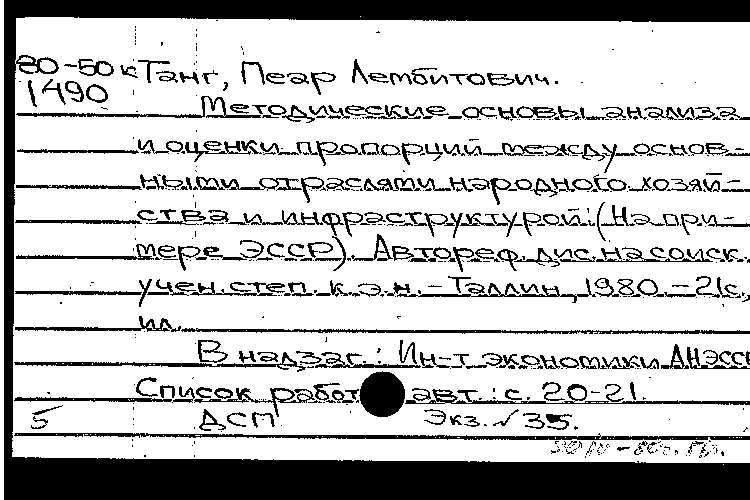 80-50к Танг, Пеар Лембитович.
1490
Методические основы анализа
и оценки пропорций между основ-
ными отраслями народного хозяй-
ства и инфраструктурой: (На при-
мере ЭССР). Автореф. дис. на соиск.
учен. степ. к. э. н. - Таллин, 1980. - 21с,
ил.
В надзаг.: Ин-т экономики АН ЭССР
Список работ авт.: с. 20-21.
5 ДСП Экз. √ 35.